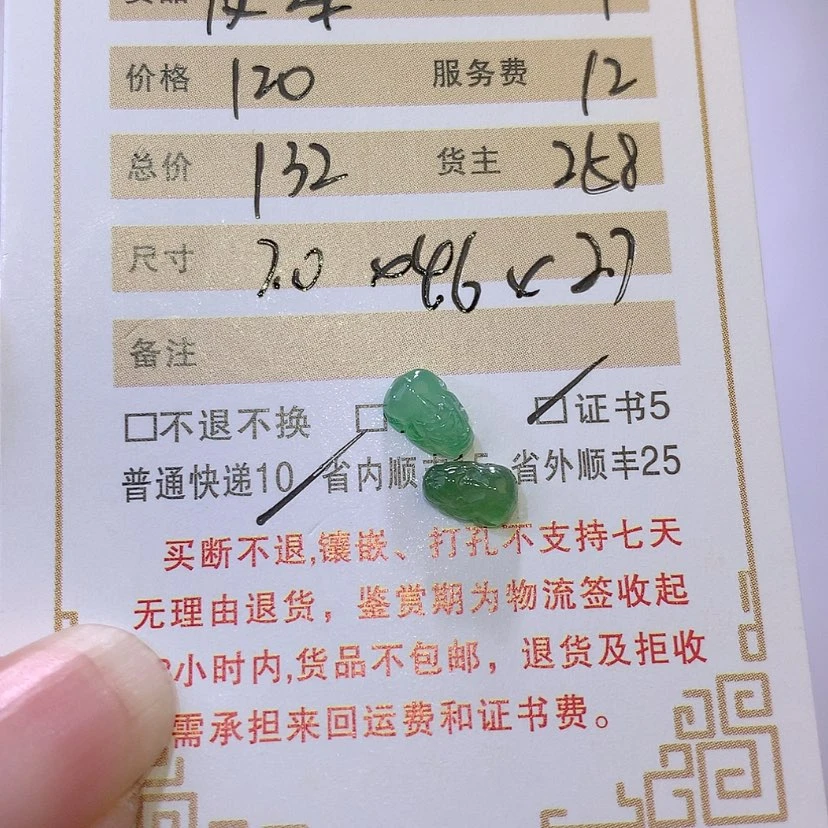 价格 120 服务费 12
总价 132 货主 268
尺寸 7.0 × 4.6 × 2.7
备注
□不退不换 □ □证书5
普通快递10 省内顺 5 省外顺丰25
买断不退,镶嵌、打孔不支持七天
无理由退货，鉴赏期为物流签收起
小时内,货品不包邮，退货及拒收
需承担来回运费和证书费。